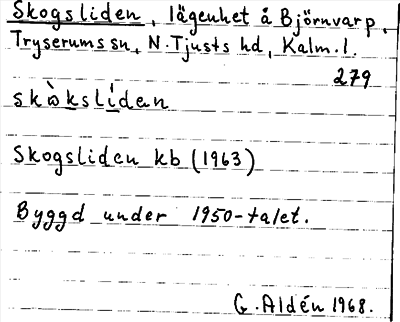 Skogsliden, lägenhet å Björnvarp,
Tryserums sn, N. Tjusts hd, Kalm. l.
279
skὼkslíden
Skogsliden kb (1963)
Byggd under 1950-talet.
G. Aldén 1968.